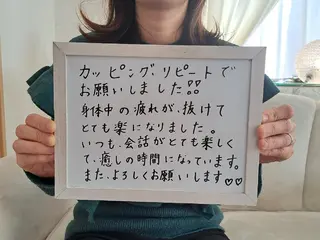 カッピングリピートで
お願いしました!!
身体中の疲れが、抜けて
とても楽になりました。
いつも、会話がとても楽しく
て、癒しの時間になっています。
また、よろしくお願いします♡♡